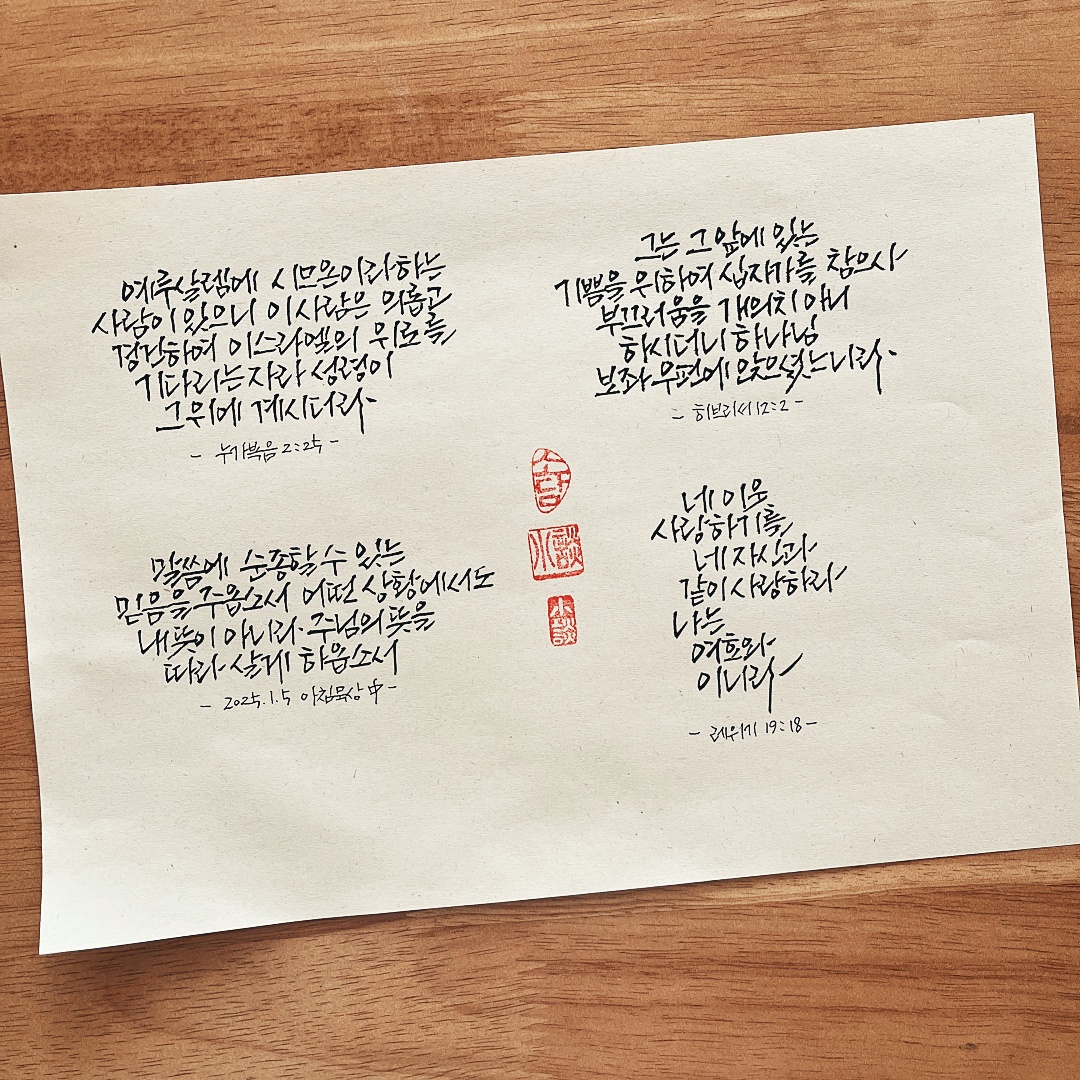 예루살렘에 시므온이라 하는
사람이 있으니 이 사람은 의롭고
경건하여 이스라엘의 위로를
기다리는 자라 성령이
그 위에 계시더라
- 누가복음 2:25 -
그는 그 앞에 있는
기쁨을 위하여 십자가를 참으사
부끄러움을 개의치 아니
하시더니 하나님
보좌 우편에 앉으셨느니라.
- 히브리서 12:2 -
말씀에 순종할 수 있는
믿음을 주옵소서 어떤 상황에서도
내 뜻이 아니라. 주님의 뜻을
따라 살게 하옵소서
- 2025.1.5 아침묵상 中 -
네 이웃
사랑하기를
네 자신과
같이 사랑하라
나는
여호와
이니라
- 레위기 19:18 -
小談
小談